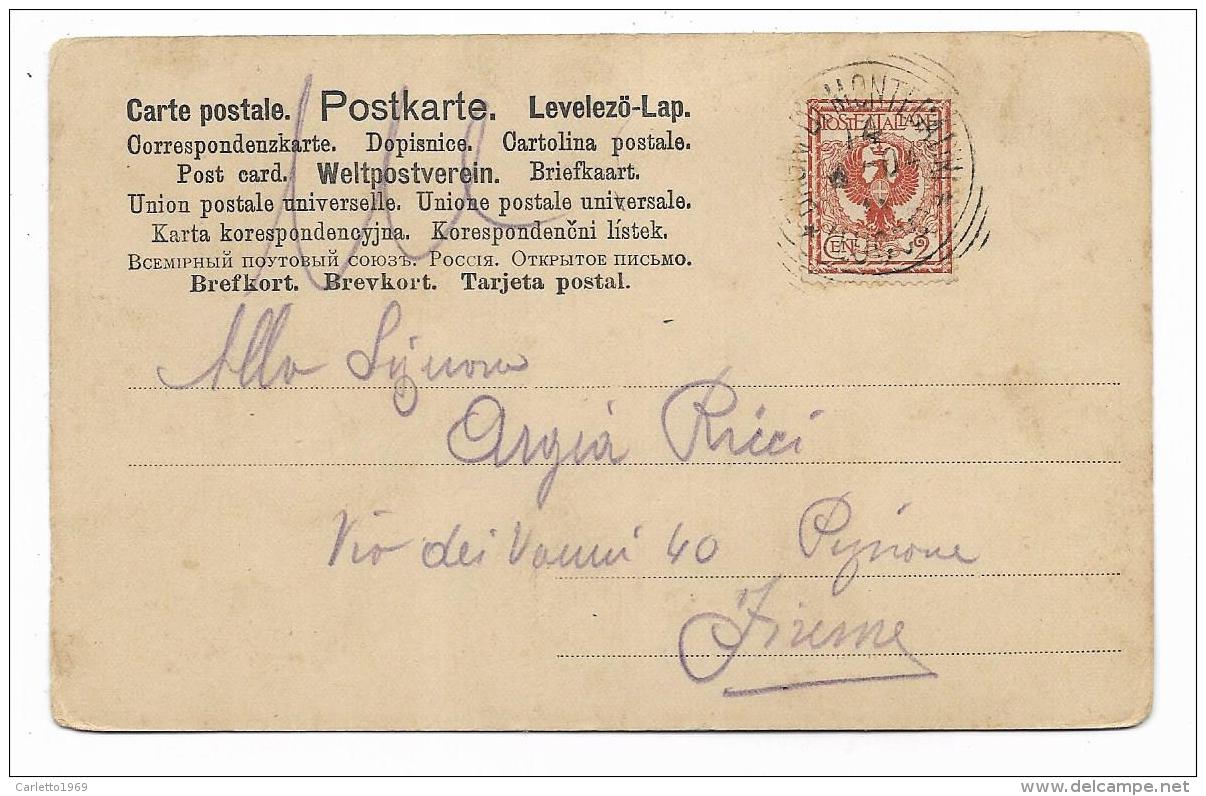 Carte postale. Postkarte. Levelezö-Lap.
Correspondenzkarte. Dopisnice. Cartolina postale.
Post card. Weltpostverein. Briefkaart.
Union postale universelle. Unione postale universale.
Karta korespondencyjna. Korespondenčni lístek.
Всемірный поутовый союзъ. Россія. Открытое письмо.
Brefkort. Brevkort. Tarjeta postal.
POSTE ITALIANE
CEN 2
Alla Signora
Argia Ricci
Via dei Vanni 40 Pignone
Firenze
Carletto1969
delcampe.net